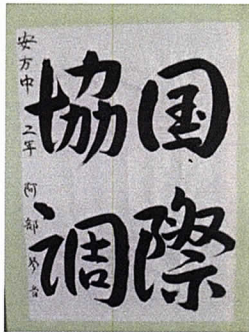 国際
協調
安方中 二年 阿部